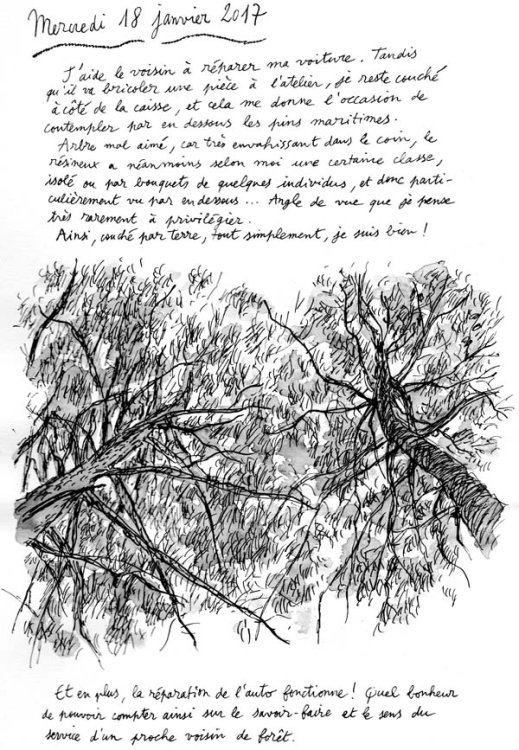 Mercredi 18 janvier 2017
J'aide le voisin à réparer ma voiture. Tandis
qu'il va bricoler une pièce à l'atelier, je reste couché
à côté de la caisse, et cela me donne l'occasion de
contempler par en dessous les pins maritimes.
Arbre mal aimé, car très envahissant dans le coin, le
résineux a néanmoins selon moi une certaine classe,
isolé ou par bouquets de quelques individus, et donc parti-
culièrement vu par en dessous... Angle de vue que je pense
très rarement à privilégier.
Ainsi, couché par terre, tout simplement, je suis bien !
Et en plus, la réparation de l'auto fonctionne ! Quel bonheur
de pouvoir compter ainsi sur le savoir-faire et le sens du
service d'un proche voisin de forêt.